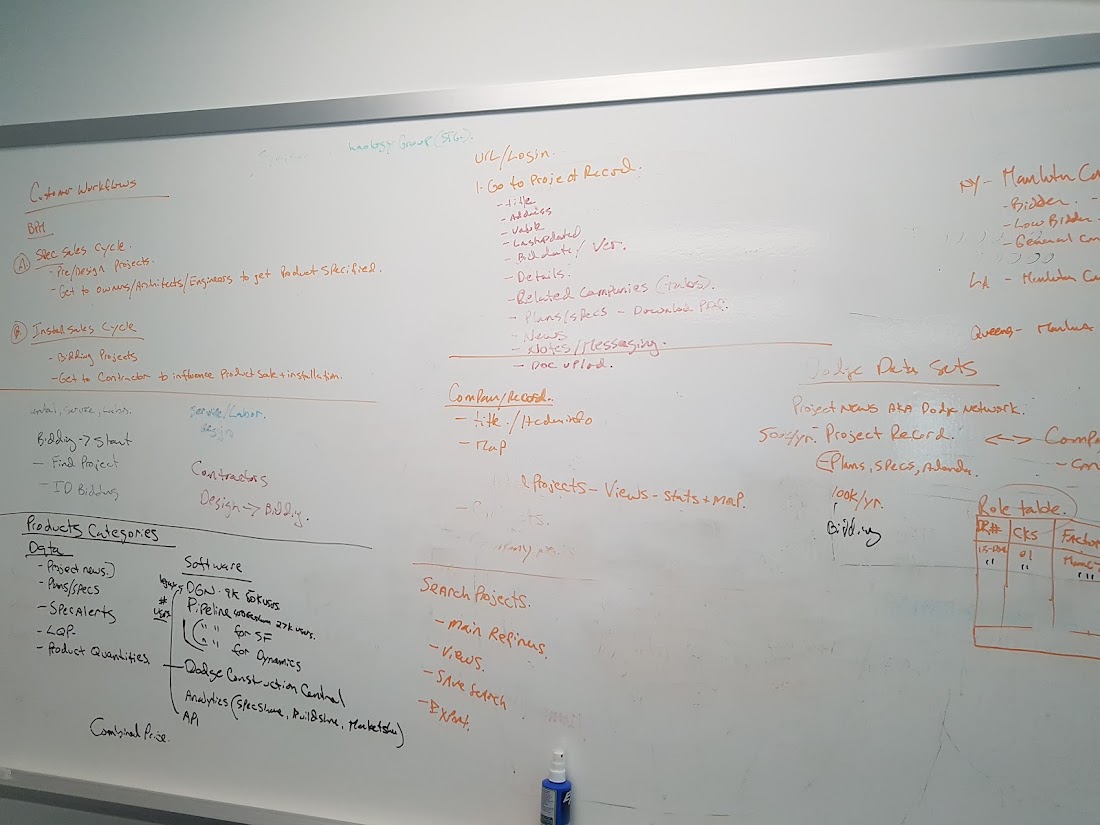 hnology Group (STG).
Customer Workflows
BPM
A Spec Sales Cycle.
- Pre/Design Projects.
- Get to owners/Architects/Engineers to get Product Specified.
B Install Sales Cycle
- Bidding Projects
- Get to Contractor to influence Product Sale + installation.
Service/Labor.
Design
Bidding -> Start
- Find Project
- ID Bidding
Contractors
Design -> Bidding.
Products Categories
Data
- Project news.)
- Plans/specs
- Spec Alerts
- LQP.
- Product Quantities
Software
DGN - 9K 60K users
# users
Pipeline 27K users.
" " for SF
" " for Dynamics
- Dodge Construction Central
Analytics (SpecShare, BuildShare, MarketShare)
API
Combined Price.
URL/Login.
1. Go to Project Record.
- Title
- Address
- Value
- Last updated
- Bid date / Ver.
- Details.
- Related Companies (-tabs).
- Plans/specs - Download PDF.
- News
- Notes/Messaging.
- Doc upload.
Company Record.
- Title. /
- Map
Projects - Views - Stats + Map.
Search Projects.
- Main Refiners.
- Views.
- Save Search
- Export.
NY -
- Bidder. -
- Low Bidder
- General Con
LA -
Queens -
Dodge Data Sets
Project News AKA Dodge Network.
500K/yr. Project Record. <-> Compa
- Con
Plans, Specs, Adenda.
100K/yr.
Bidding
Role table.
DR# CKS Factor
" 01
" "